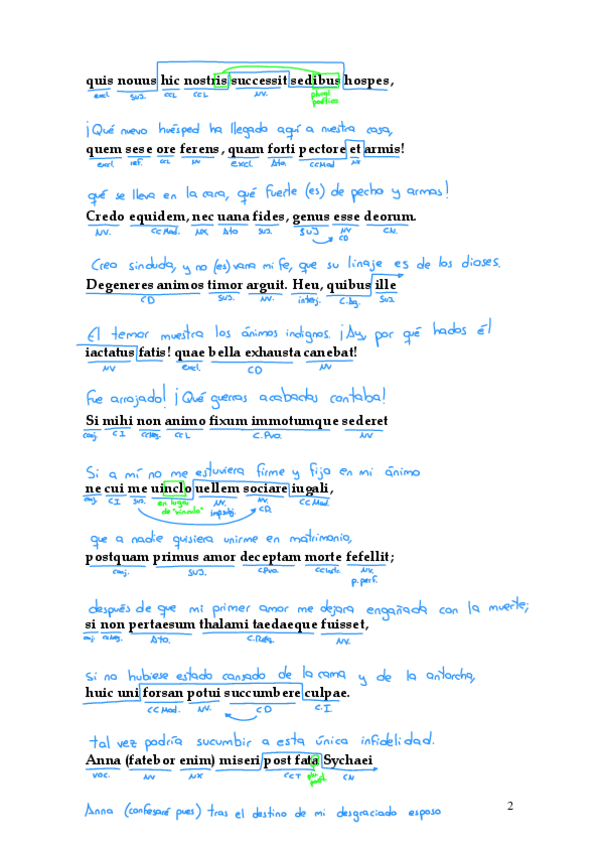 quis nouus hic nostris successit sedibus hospes,
excl. SUJ. CCL CCL NV. plural poético
¡Qué nuevo huésped ha llegado aquí a nuestra casa,
quem sese ore ferens, quam forti pectore et armis!
excl ref. CCL NV excl. Ato. CCMod NX
qué se lleva en la cara, qué fuerte (es) de pecho y armas!
Credo equidem, nec uana fides, genus esse deorum.
NV. CCMod. NX Ato SUJ. SUJ NV CN.
CD
Creo sin duda, y no (es) vana mi fe, que su linaje es de los dioses.
Degeneres animos timor arguit. Heu, quibus ille
CD SUJ. NV. interj. C.Ag. SUJ
El temor muestra los ánimos indignos. ¡Ay, por qué hados él
iactatus fatis! quae bella exhausta canebat!
NV excl. CD NV
fue arrojado! ¡Qué guerras acabadas contaba!
Si mihi non animo fixum immotumque sederet
conj. CI CCNeg. CCL C.Pvo. NV
Si a mí no me estuviera firme y fija en mi ánimo
ne cui me uinclo uellem sociare iugali,
conj. CI SUJ. en lugar de "vinculo" NV. impsubj. NV. CD. CCMod.
que a nadie quisiera unirme en matrimonio,
postquam primus amor deceptam morte fefellit;
conj. SUJ. CPvo. CCInstr. NV. p.perf.
después de que mi primer amor me dejara engañada con la muerte;
si non pertaesum thalami taedaeque fuisset,
conj. CCNeg. Ato. C.Rég. NV.
si no hubiese estado cansado de la cama y de la antorcha,
huic uni forsan potui succumbere culpae.
CCMod. NV. CD C.I
tal vez podría sucumbir a esta única infidelidad.
Anna (fatebor enim) miseri post fata Sychaei
voc. NV NX CCT plu poét. CN
Anna (confesaré pues) tras el destino de mi desgraciado esposo
2